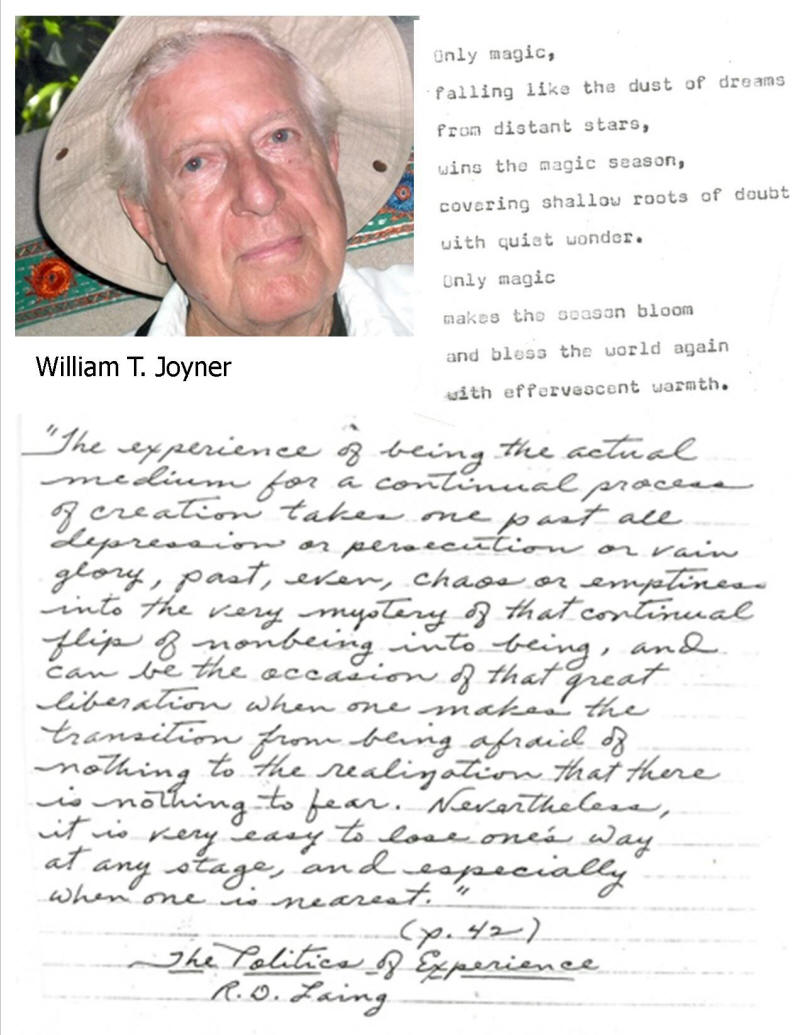 Only magic,
falling like the dust of dreams
from distant stars,
wins the magic season,
covering shallow roots of doubt
with quiet wonder.
Only magic
makes the season bloom
and bless the world again
with effervescent warmth.
William T. Joyner
"The experience of being the actual
medium for a continual process
of creation takes one past all
depression or persecution or vain
glory, past, even, chaos or emptiness
into the very mystery of that continual
flip of nonbeing into being, and
can be the occasion of that great
liberation when one makes the
transition from being afraid of
nothing to the realization that there
is nothing to fear. Nevertheless,
it is very easy to lose one's way
at any stage, and especially
when one is nearest."
(p. 42)
The Politics of Experience
R. D. Laing